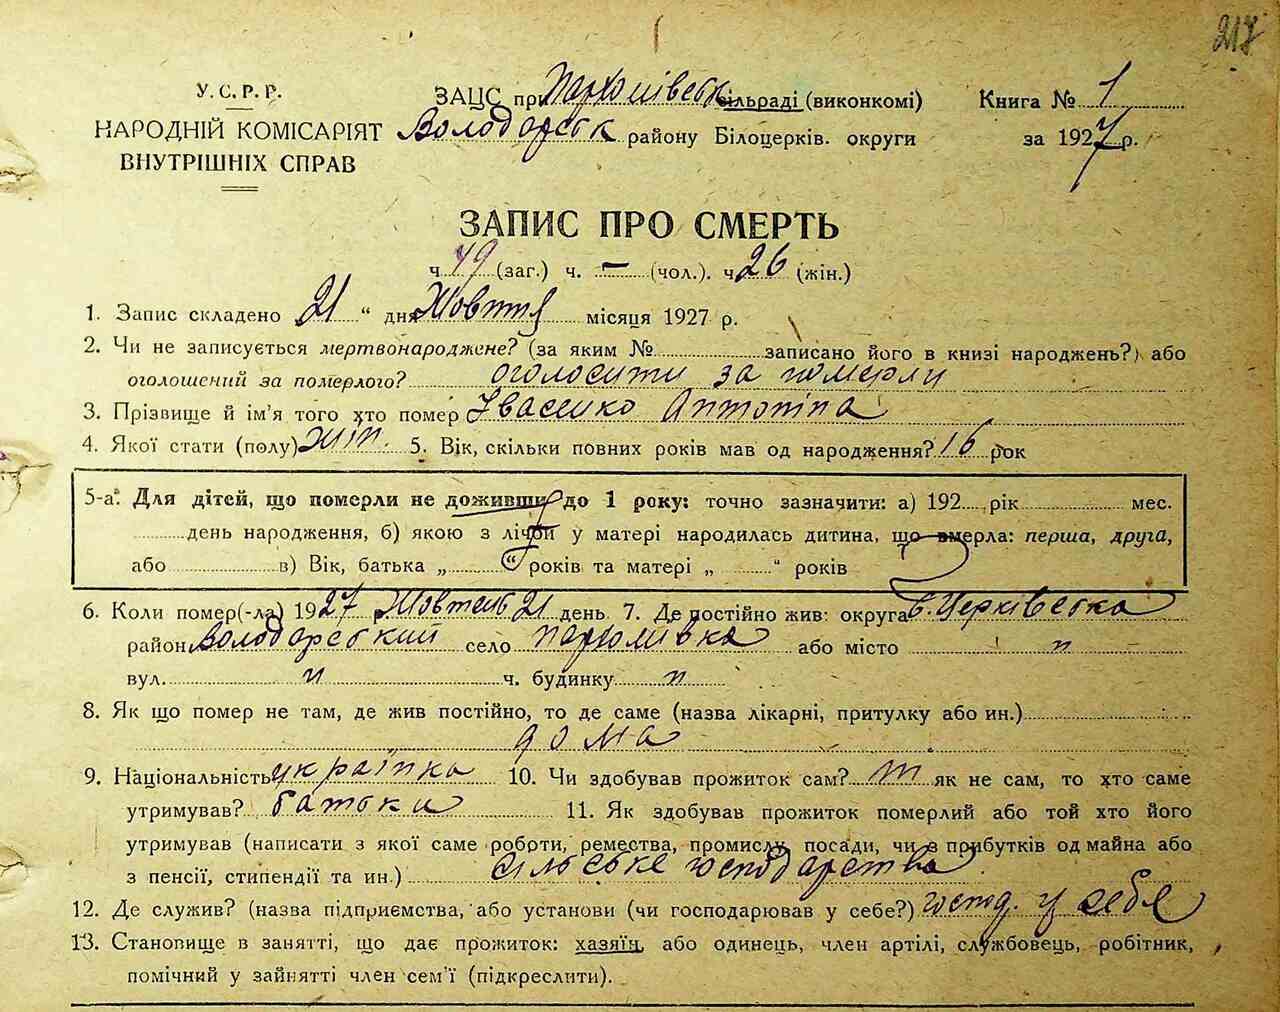 217
У.С.Р.Р.
НАРОДНІЙ КОМІСАРІЯТ
ВНУТРІШНІХ СПРАВ
ЗАЦС при Пархомівськ сільраді (виконкомі)
Володарськ району Білоцерків. округи
Книга № 1
за 1927 р.
ЗАПИС ПРО СМЕРТЬ
ч 49 (заг.) ч. – (чол.). ч 26 (жін.)
1. Запис складено 21 “ дня Жовтня місяця 1927 р.
2. Чи не записується мертвонароджене? (за яким № записано його в книзі народжень?) або
оголошений за померлого? оголосити за померлу
3. Прізвище й ім'я того хто помер Івасенко Антоніна
4. Якої стати (полу) жін. 5. Вік, скільки повних років мав од народження? 16 рок
5-а. Для дітей, що померли не доживши до 1 року: точно зазначити: а) 192 рік мес.
день народження, б) якою з лічби у матері народилась дитина, що вмерла: перша, друга,
або в) Вік, батька „ “ років та матері „ “ років
6. Коли помер(-ла) 1927 р. Жовтень 21 день 7. Де постійно жив: округа Б. Церківська
район Володарський село Пархомівка або місто п
вул. п ч. будинку п
8. Як що помер не там, де жив постійно, то де саме (назва лікарні, притулку або ин.)
дома
9. Національність українка 10. Чи здобував прожиток сам? як не сам, то хто саме
утримував? батьки 11. Як здобував прожиток померлий або той хто його
утримував (написати з якої саме роботи, ремества, промислу, посади, чи з прибутків од майна або
з пенсії, стипендії та ин.) сільське господарства
12. Де служив? (назва підприємства, або установи (чи господарював у себе?) господ. у себе
13. Становище в занятті, що дає прожиток: хазяїн, або одинець, член артілі, службовець, робітник,
помічний у зайнятті член сем'ї (підкреслити).